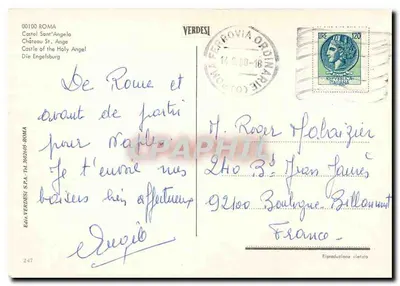 00100 ROMA
Castel Sant'Angelo
Château St. Ange
Castle of the Holy Angel
Die Engelsburg
VERDESI
ROMA FERROVIA ORDINARIE
LIRE 120
De Rome et
avant de partir
pour Naples
Je t'envoie mes
baisers bien affectueux
Angèle
M. Roger
240 Bd Jean Jaurès
92100 Boulogne Billancourt
France
Ediz. VERDESI S.P.A. ROMA
Riproduzione vietata